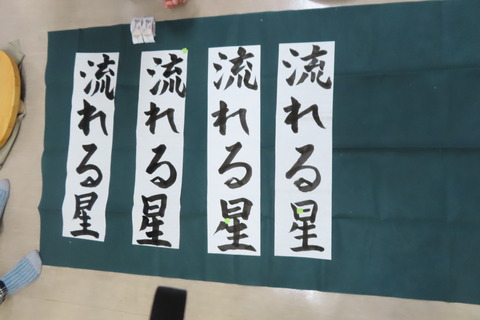 流れる星
流れる星
流れる星
流れる星